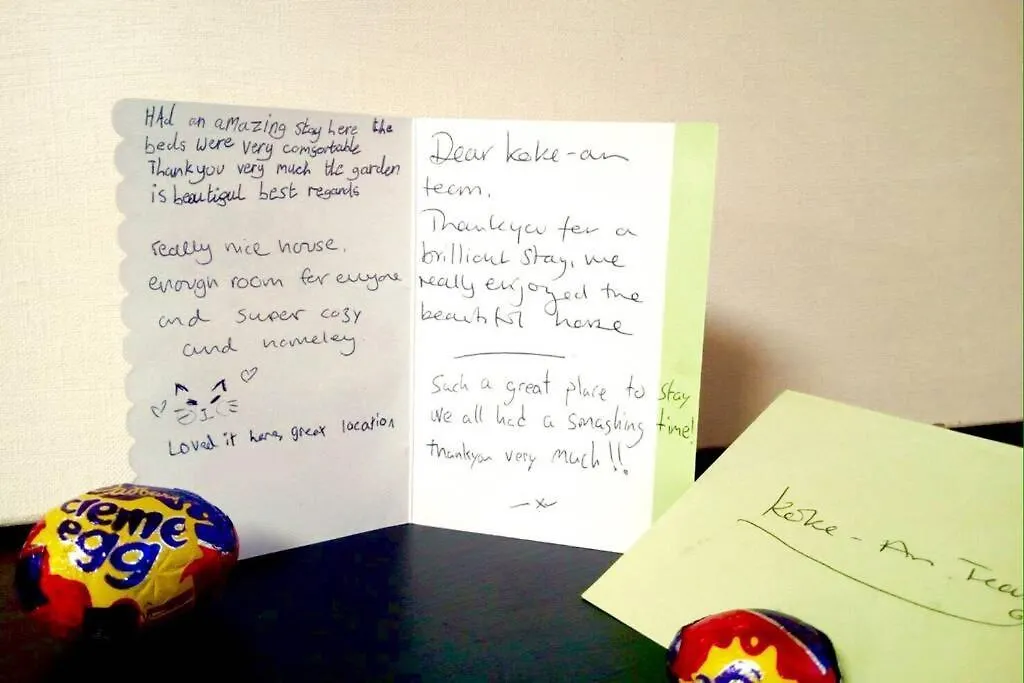 HAd an amazing stay here the
beds were very comfortable
Thankyou very much the garden
is beautiful best regards
really nice house.
enough room for everyone
and super cozy
and homeley.
Loved it here, great location
Dear koke-an
team.
Thankyou for a
brilliant stay, we
really enjoyed the
beautiful house
Such a great place to stay
We all had a smashing time!
thankyou very much!!
-x-
Koke-An Team
Cadbury
creme
egg